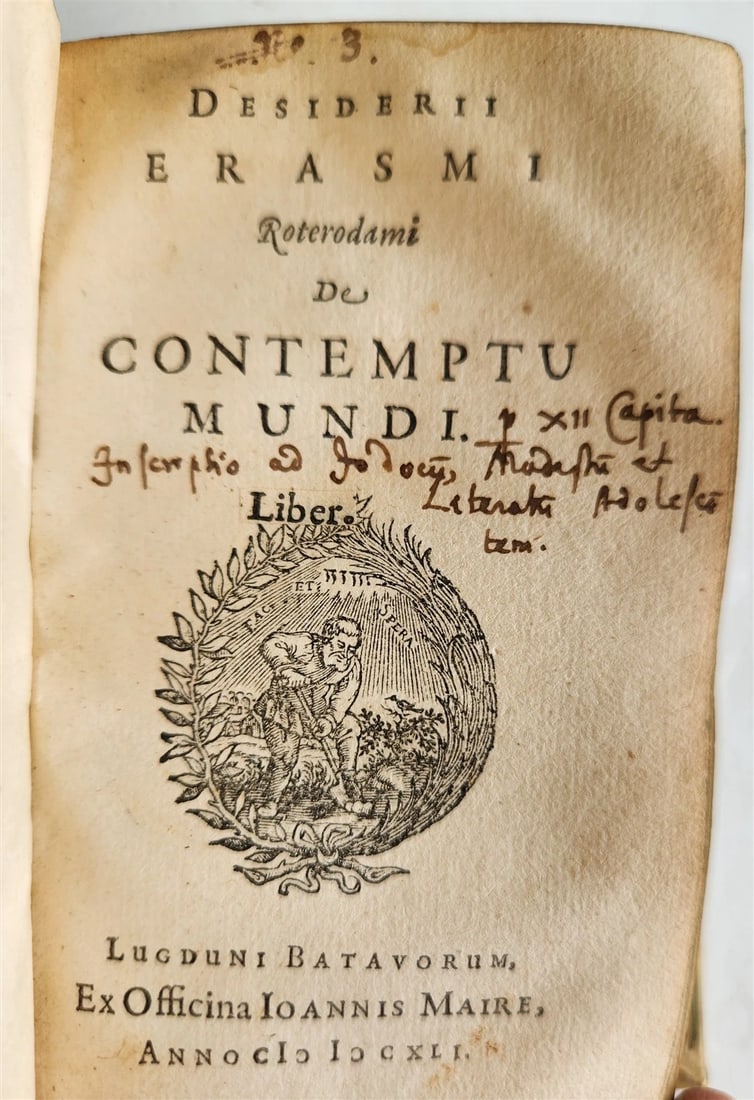 No. 3.
DESIDERII
ERASMI
Roterodami
De
CONTEMPTU
MUNDI. p XII Capita.
Inscriptio ad Jodocū, Modestū et
Liber. Literatū Adolescē
tem.
FAC. ET SPERA
LUGDUNI BATAVORUM,
Ex Officina IOANNIS MAIRE,
ANNO CIↃ IↃCXLI.